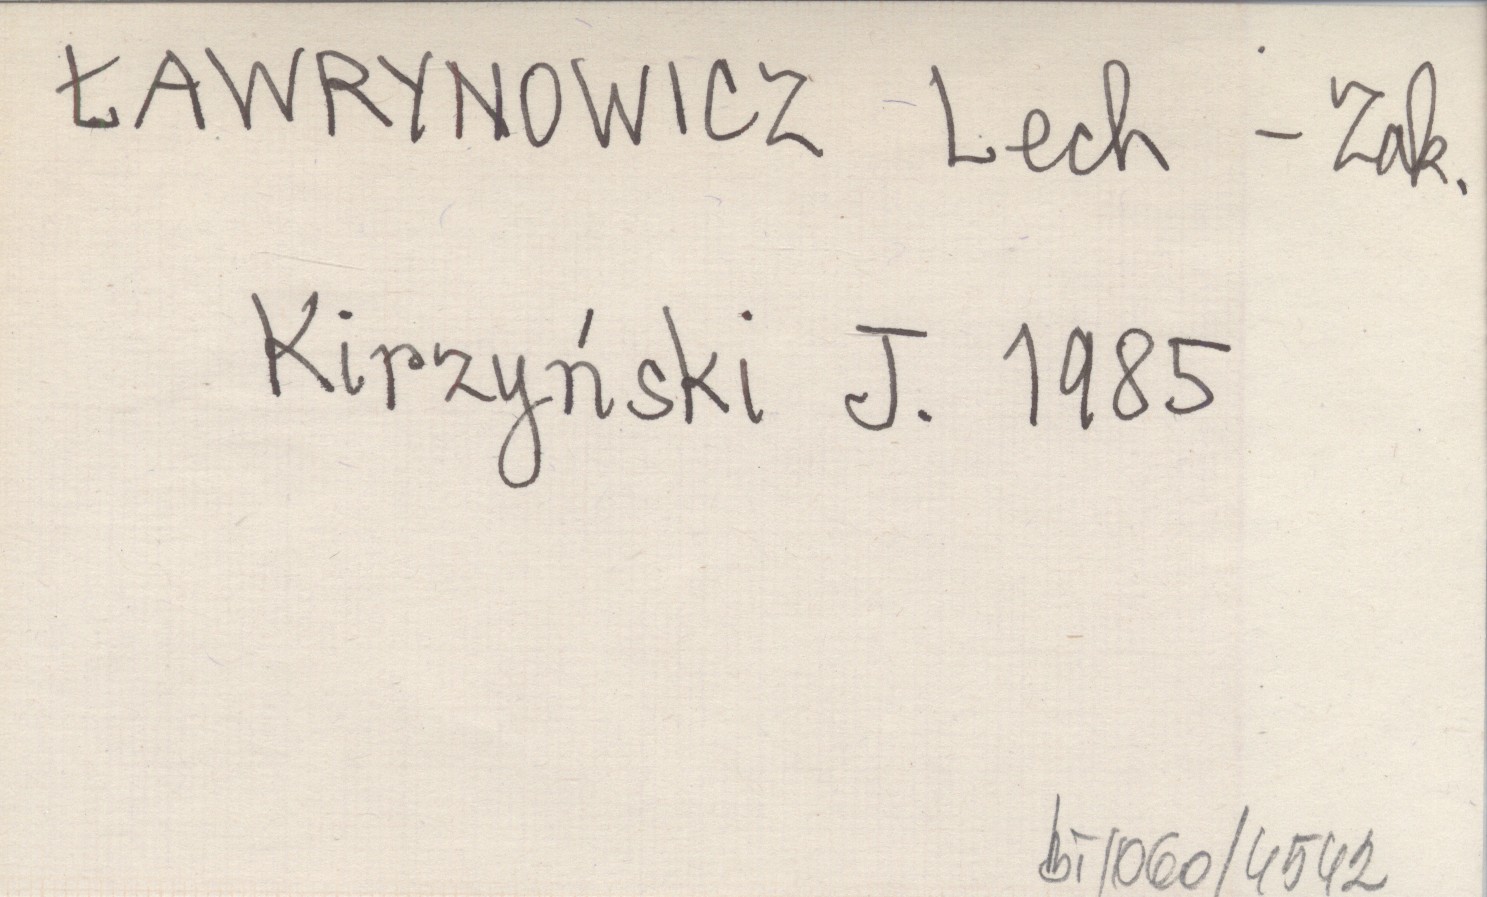 ŁAWRYNOWICZ Lech - Zak.
Kirzyński J. 1985
bi/060/4542